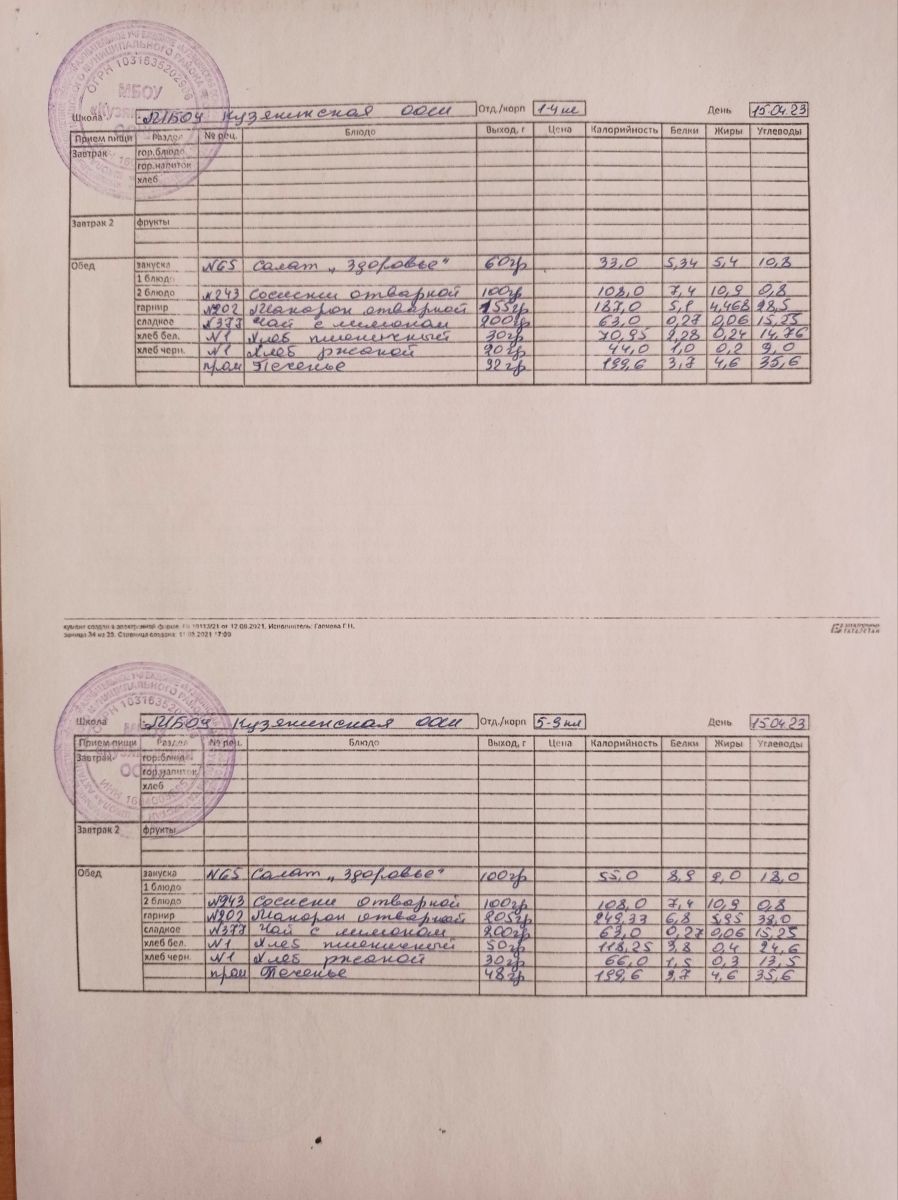 МБОУ
ОГРН 1031635202998
Школа МБОУ Кузякинская ООШ Отд./корп 1-4 кл День 15.04.23
Прием пищи Раздел № рец. Блюдо Выход, г Цена Калорийность Белки Жиры Углеводы
Завтрак гор.блюдо
гор.напиток
хлеб
Завтрак 2 фрукты
Обед закуска №65 Салат „Здоровье" 60гр 33,0 5,34 5,4 10,8
1 блюдо
2 блюдо №243 Сосиски отварной 100гр 108,0 7,4 10,9 0,8
гарнир №202 Макарон отварной 155гр 187,0 5,1 4,468 28,5
сладкое №377 Чай с лимоном 200гр 63,0 0,27 0,06 15,25
хлеб бел. №1 Хлеб пшеничный 30гр 70,95 2,28 0,24 14,76
хлеб черн. №1 Хлеб ржаной 20гр 44,0 1,0 0,2 9,0
пром Печенье 92гр 199,6 3,7 4,6 35,6
Исполнитель: Гапиева Г.Н.
Страница создана: 11.08.2021 17:09
Школа МБОУ Кузякинская ООШ Отд./корп 5-9 кл День 15.04.23
Прием пищи Раздел № рец. Блюдо Выход, г Цена Калорийность Белки Жиры Углеводы
Завтрак гор.блюдо
гор.напиток
хлеб
Завтрак 2 фрукты
Обед закуска №65 Салат „Здоровье" 100гр 55,0 8,9 9,0 18,0
1 блюдо
2 блюдо №243 Сосиски отварной 100гр 108,0 7,4 10,9 0,8
гарнир №202 Макарон отварной 205гр 249,33 6,8 5,95 38,0
сладкое №377 Чай с лимоном 200гр 63,0 0,27 0,06 15,25
хлеб бел. №1 Хлеб пшеничный 50гр 118,25 3,8 0,4 24,6
хлеб черн. №1 Хлеб ржаной 30гр 66,0 1,5 0,3 13,5
пром Печенье 48гр 199,6 3,7 4,6 35,6